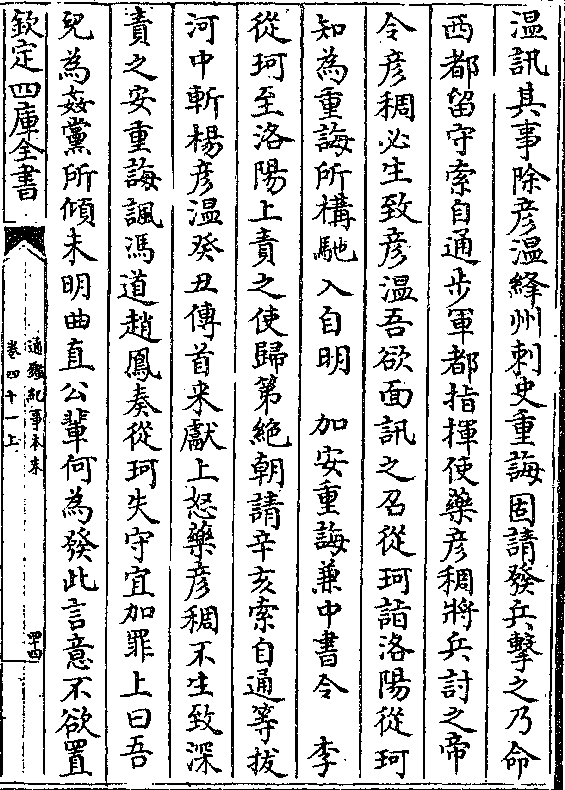 温訊其事除彦温絳州刺史重誨固請發兵擊之乃命
西都留守索自通步軍都指揮使藥彦稠將兵討之帝
令彦稠必生致彦温吾欲面訊之召從珂詣洛陽從珂
知為重誨所構馳入自明　加安重誨兼中書令　李
從珂至洛陽上責之使歸第絶朝請辛亥索自通等拔
河中斬楊彦温癸丑傳首来獻上怒藥彦稠不生致深
責之安重誨諷馮道趙鳳奏從珂失守宜加罪上曰吾
兒為姦黨所傾未明曲直公輩何為發此言意不欲置
欽定四庫全書
通鑑紀事本末
卷四十一上
四十四